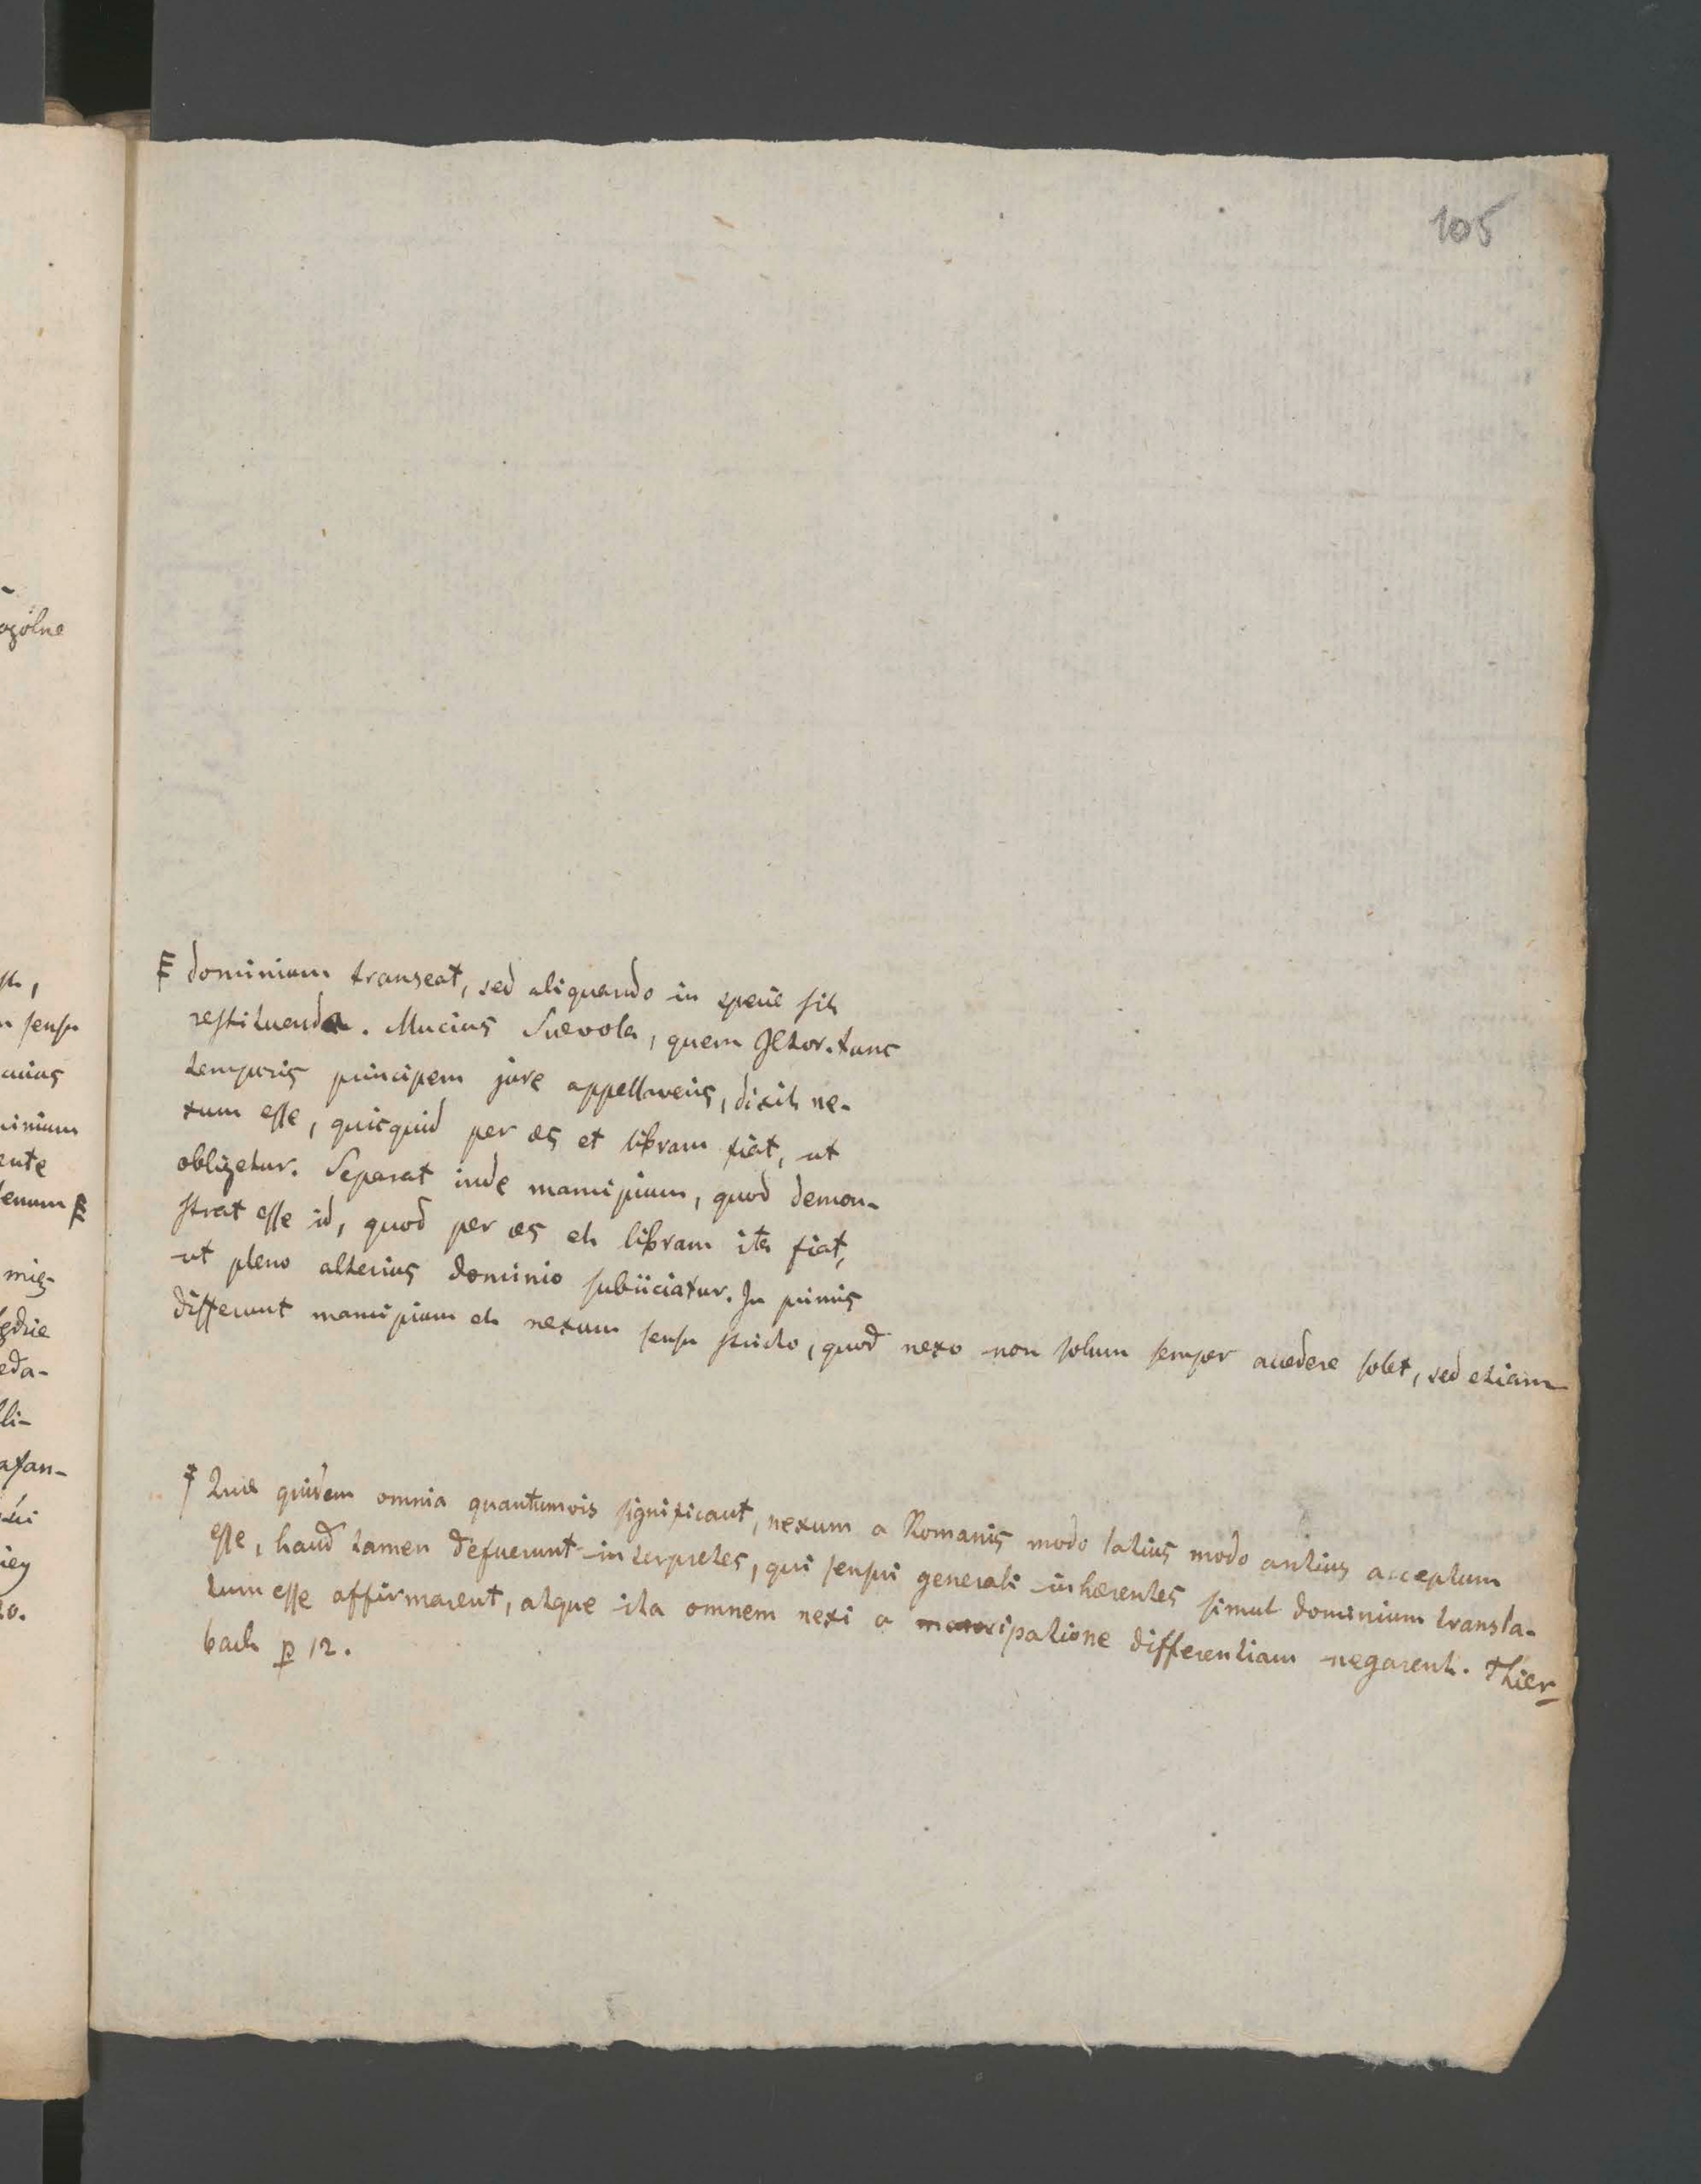 105
dominium transeat, sed aliquando in specie sit
restituenda. Mucius Scævola, quem JCtor. tunc
temporis principem jure appellaveris, dixit ne-
xum esse, quicquid per æs et libram fiat, ut
obligetur. Separat inde mancipium, quod demon-
strat esse id, quod per æs et libram ita fiat,
ut pleno alterius dominio subiiciatur. In primis
differunt mancipium et nexum sensu stricto, quod nexo non solum semper accedere solet, sed etiam
Quæ quidem omnia quantumvis significant, nexum a Romanis modo latius modo arctius acceptum
esse, haud tamen defuerunt interpretes, qui sensui generali inhærentes simul dominium transla-
tum esse affirmarent, atque ita omnem nexi a mancipatione differentiam negarent. Thier-
bach p 12.
ogólne
sensu
mię-